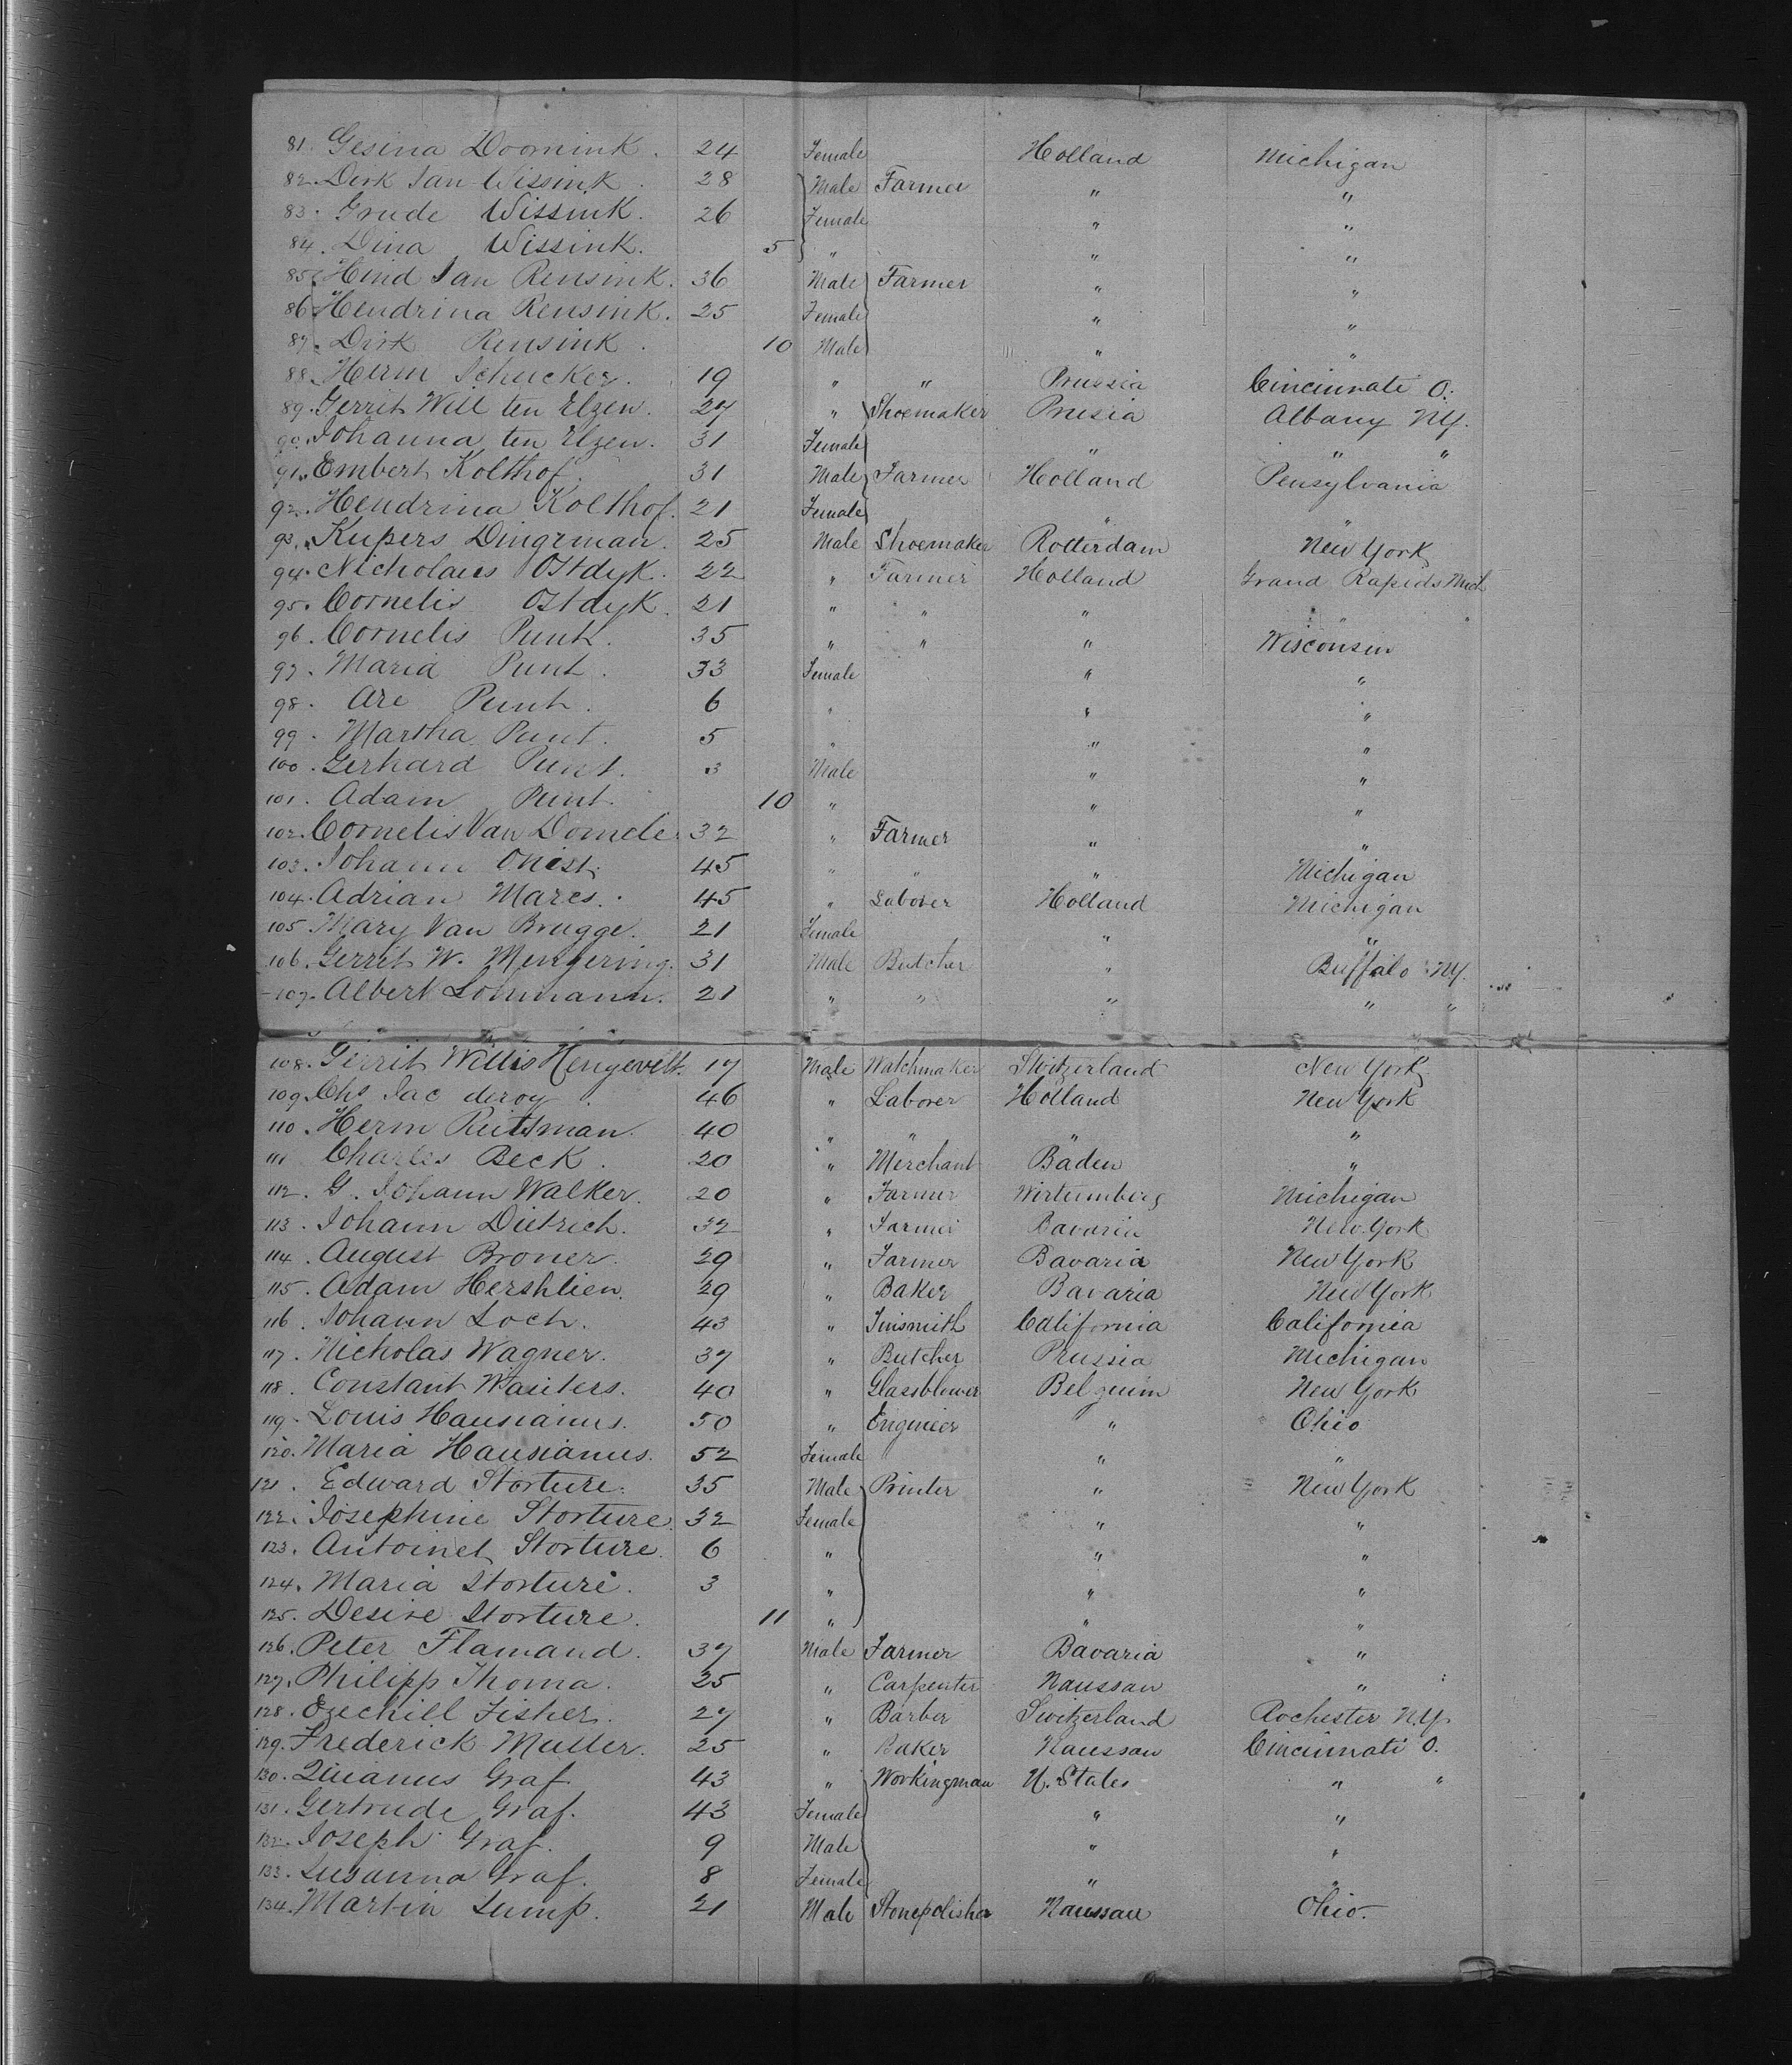 81. Gesina Doornink. 24 Female Holland Michigan
82. Derk Jan Wissink. 28 Male Farmer " "
83. Grude Wissink. 26 Female " "
84. Dina Wissink. 5 " " "
85. Hend Jan Rensink. 36 Male Farmer " "
86. Hendrina Rensink. 25 Female " "
87. Dirk Rensink. 10 Male " "
88. Herm Schucker. 19 " " Prussia Cincinnate O.
89. Gerrit Will ten Elzen. 27 " Shoemaker Prusia Albany NY.
90. Johanna ten Elzen. 31 Female " " "
91. Embert Kolthof. 31 Male Farmer Holland Pensylvania
92. Hendrina Kolthof. 21 Female " "
93. Kupers Dingrman. 25 Male Shoemaker Rotterdam New York
94. Nicholaus Ostdyk. 22 " Farmer Holland Grand Rapids Mich
95. Cornelis Ostdyk. 21 " " " " "
96. Cornelis Punt. 35 " " " Wisconsin
97. Maria Punt. 33 Female " "
98. Are Punt. 6 " " "
99. Martha Punt. 5 " " "
100. Gerhard Punt. 3 Male " "
101. Adam Punt. 10 " " "
102. Cornelis Van Domele. 32 " Farmer " "
103. Johann Onist. 45 " " " Michigan
104. Adrian Mares. 45 " Laborer Holland Michigan
105. Mary Van Brugge. 21 Female " "
106. Gerrit W. Mengering. 31 Male Butcher " Buffalo NY.
107. Albert Lohmann. 21 " " " " "
108. Gerrit Willis Hengevelt. 17 Male Watchmaker Switzerland New York
109. Chs Jac deroy. 46 " Laborer Holland New York
110. Herm Reitsman. 40 " " " "
111. Charles Beck. 20 " Merchant Baden "
112. G. Johann Walker. 20 " Farmer Wirtumberg Michigan
113. Johann Dietrich. 32 " Farmer Bavaria New York
114. August Broner. 29 " Farmer Bavaria New York
115. Adam Hershlien. 29 " Baker Bavaria New York
116. Johann Loch. 43 " Tinsmith California California
117. Nicholas Wagner. 37 " Butcher Prussia Michigan
118. Constant Wauters. 40 " Glassblower Belgeum New York
119. Louis Hausianus. 50 " Engineer " Ohio
120. Maria Hausianus. 52 Female " "
121. Edward Storture. 35 Male Printer " New York
122. Josephine Storture. 32 Female " "
123. Antoinet Storture. 6 " " "
124. Maria Storture. 3 " " "
125. Desire Storture. 11 " " "
126. Peter Flamand. 37 Male Farmer Bavaria "
127. Philipp Thoma. 25 " Carpenter Naussau "
128. Ezechill Fisher. 27 " Barber Switzerland Rochester N.Y.
129. Frederick Muller. 25 " Baker Naussau Cincinnati O.
130. Graf. 43 " Workingman U. States " "
131. Gertrude Graf. 43 Female " "
132. Joseph Graf. 9 Male " "
133. Susanna Graf. 8 Female " "
134. Martin Sump. 21 Male Stonepolisher Naussau Ohio.